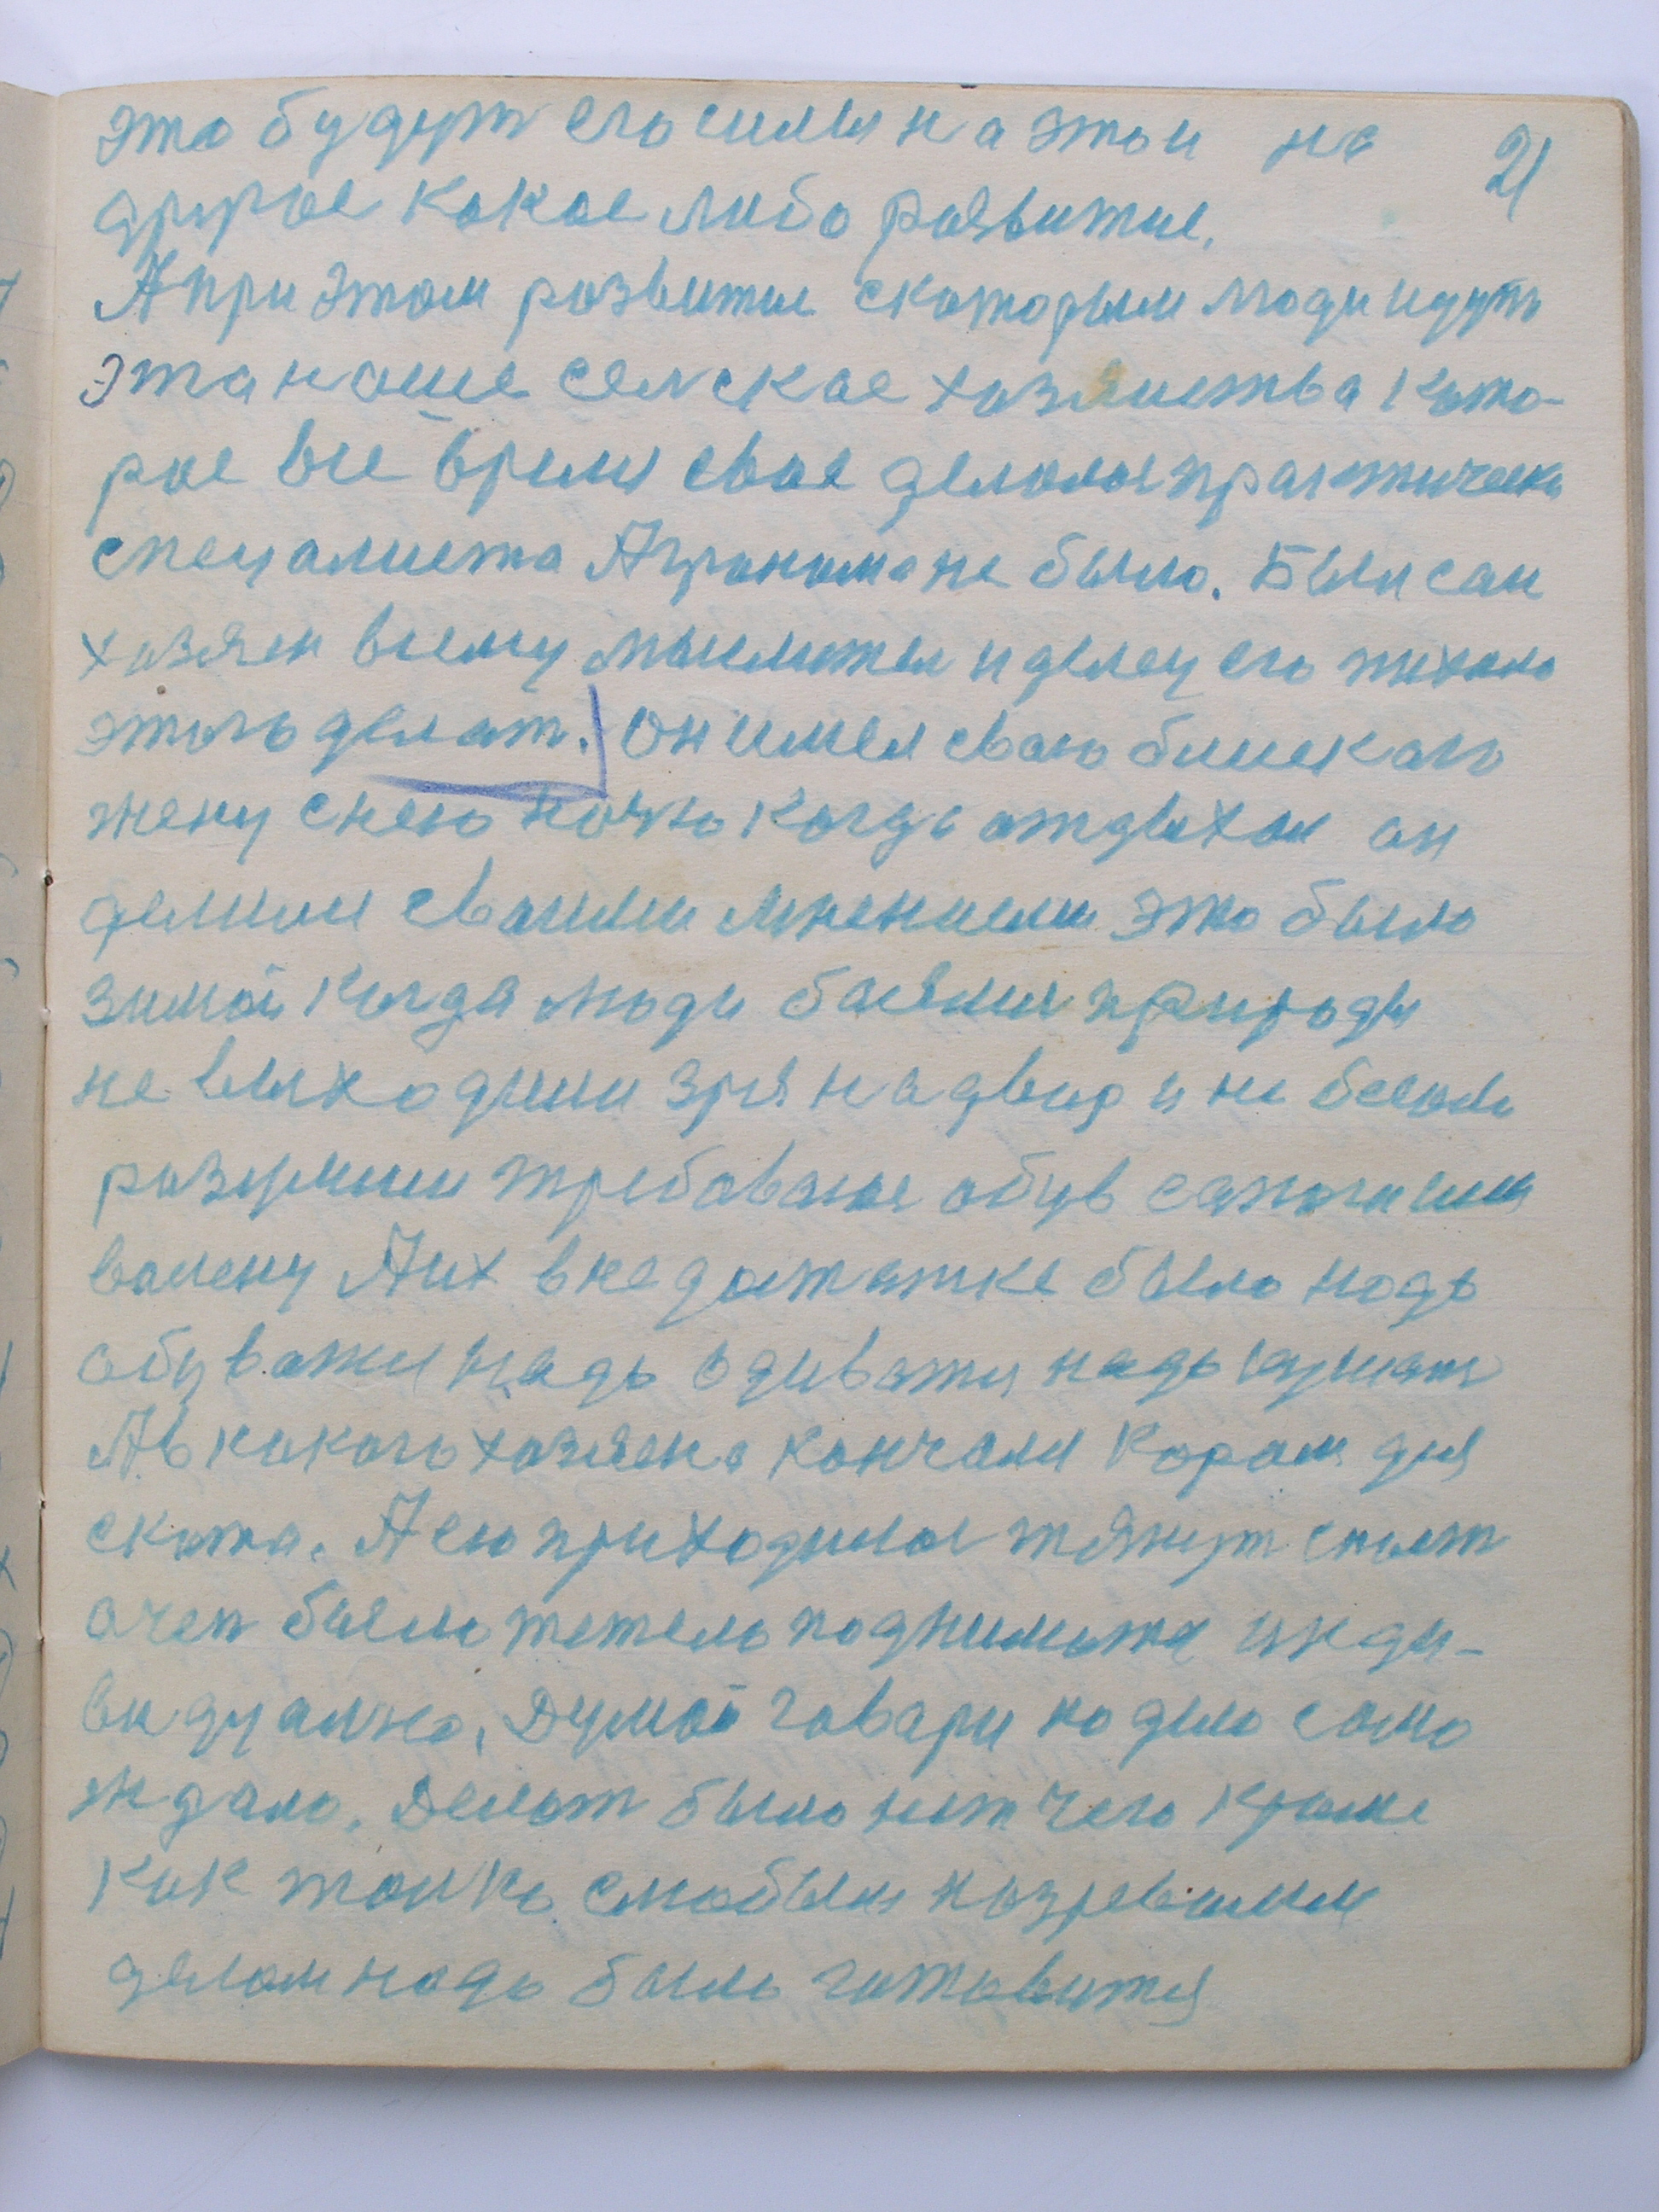 это будут его силы на этои не 21
другое какое либо развитие.
А при этом развитие скоторым люди идут
эта наше селское хазяиства като-
рое все время свое делалос практически
спецалиста Агранома не было. Был сам
хазяен всему мыслител и делец его тихало
этого делат. Он имел сваю близкаго
жену с нею ночю когда отдыхал он
делили сваими мнениеми это было
зимой когда люди баялися природы
не выходили зря на двир и не бегали
разумыли требавалос обув сапоги или
валенц А их в недостатке было надо
обуватися надо одиватися надо кушат
А в какого хазяена кончался корам для
скота. А ею приходилос тянут
очен было тежело подниматся инди-
видуално, Думай говари но дело само
ждало. Делат было нет чего кроме
как толко слабым назревшим
делом надо было готовится